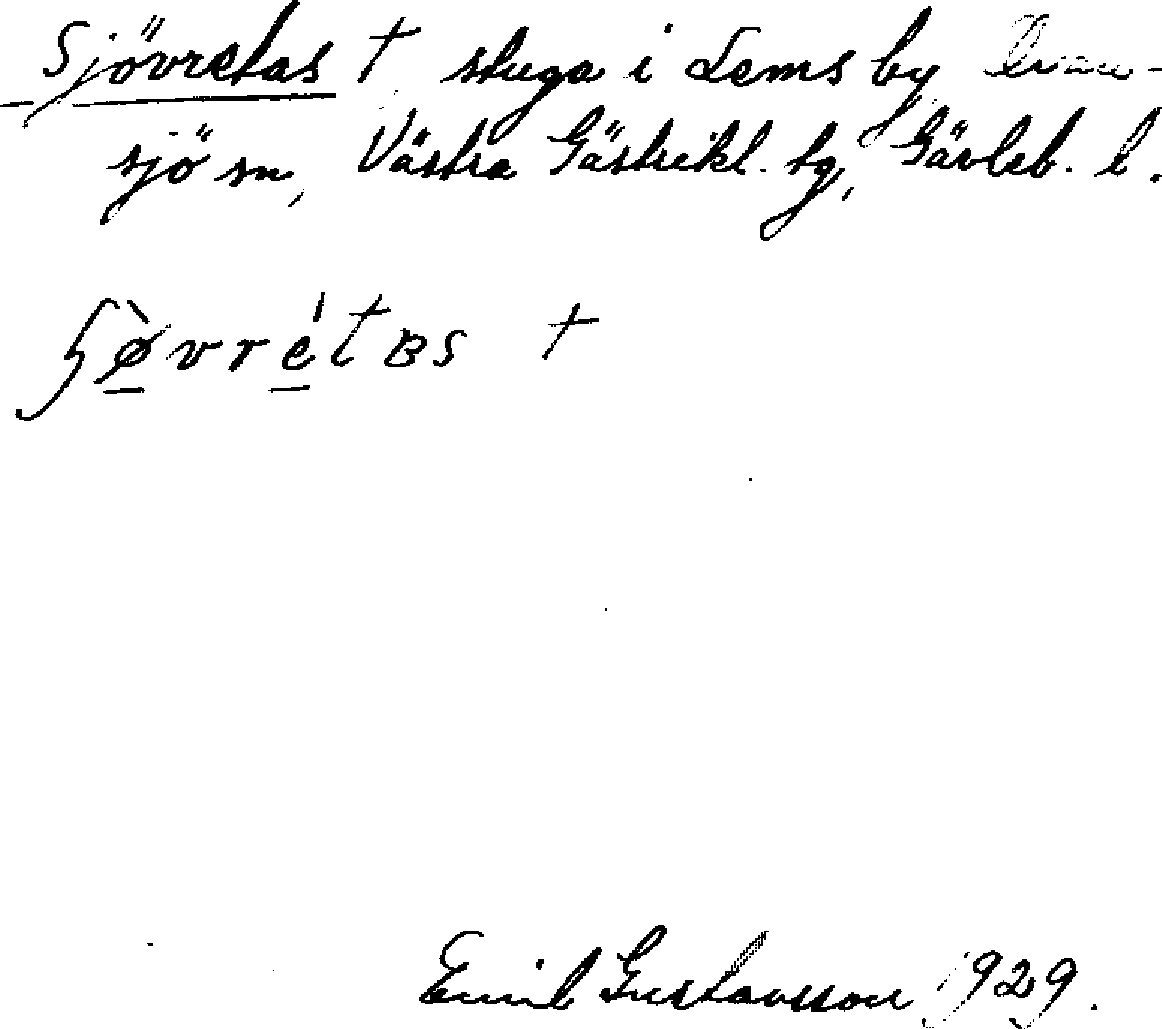 Sjövretas † stuga i Lems by Ovan-
sjö sn, Västra Gästrikl. tg, Gävleb. l.
ʃø̠̀vré̠tʙs †
Emil Gustavsson 1929.